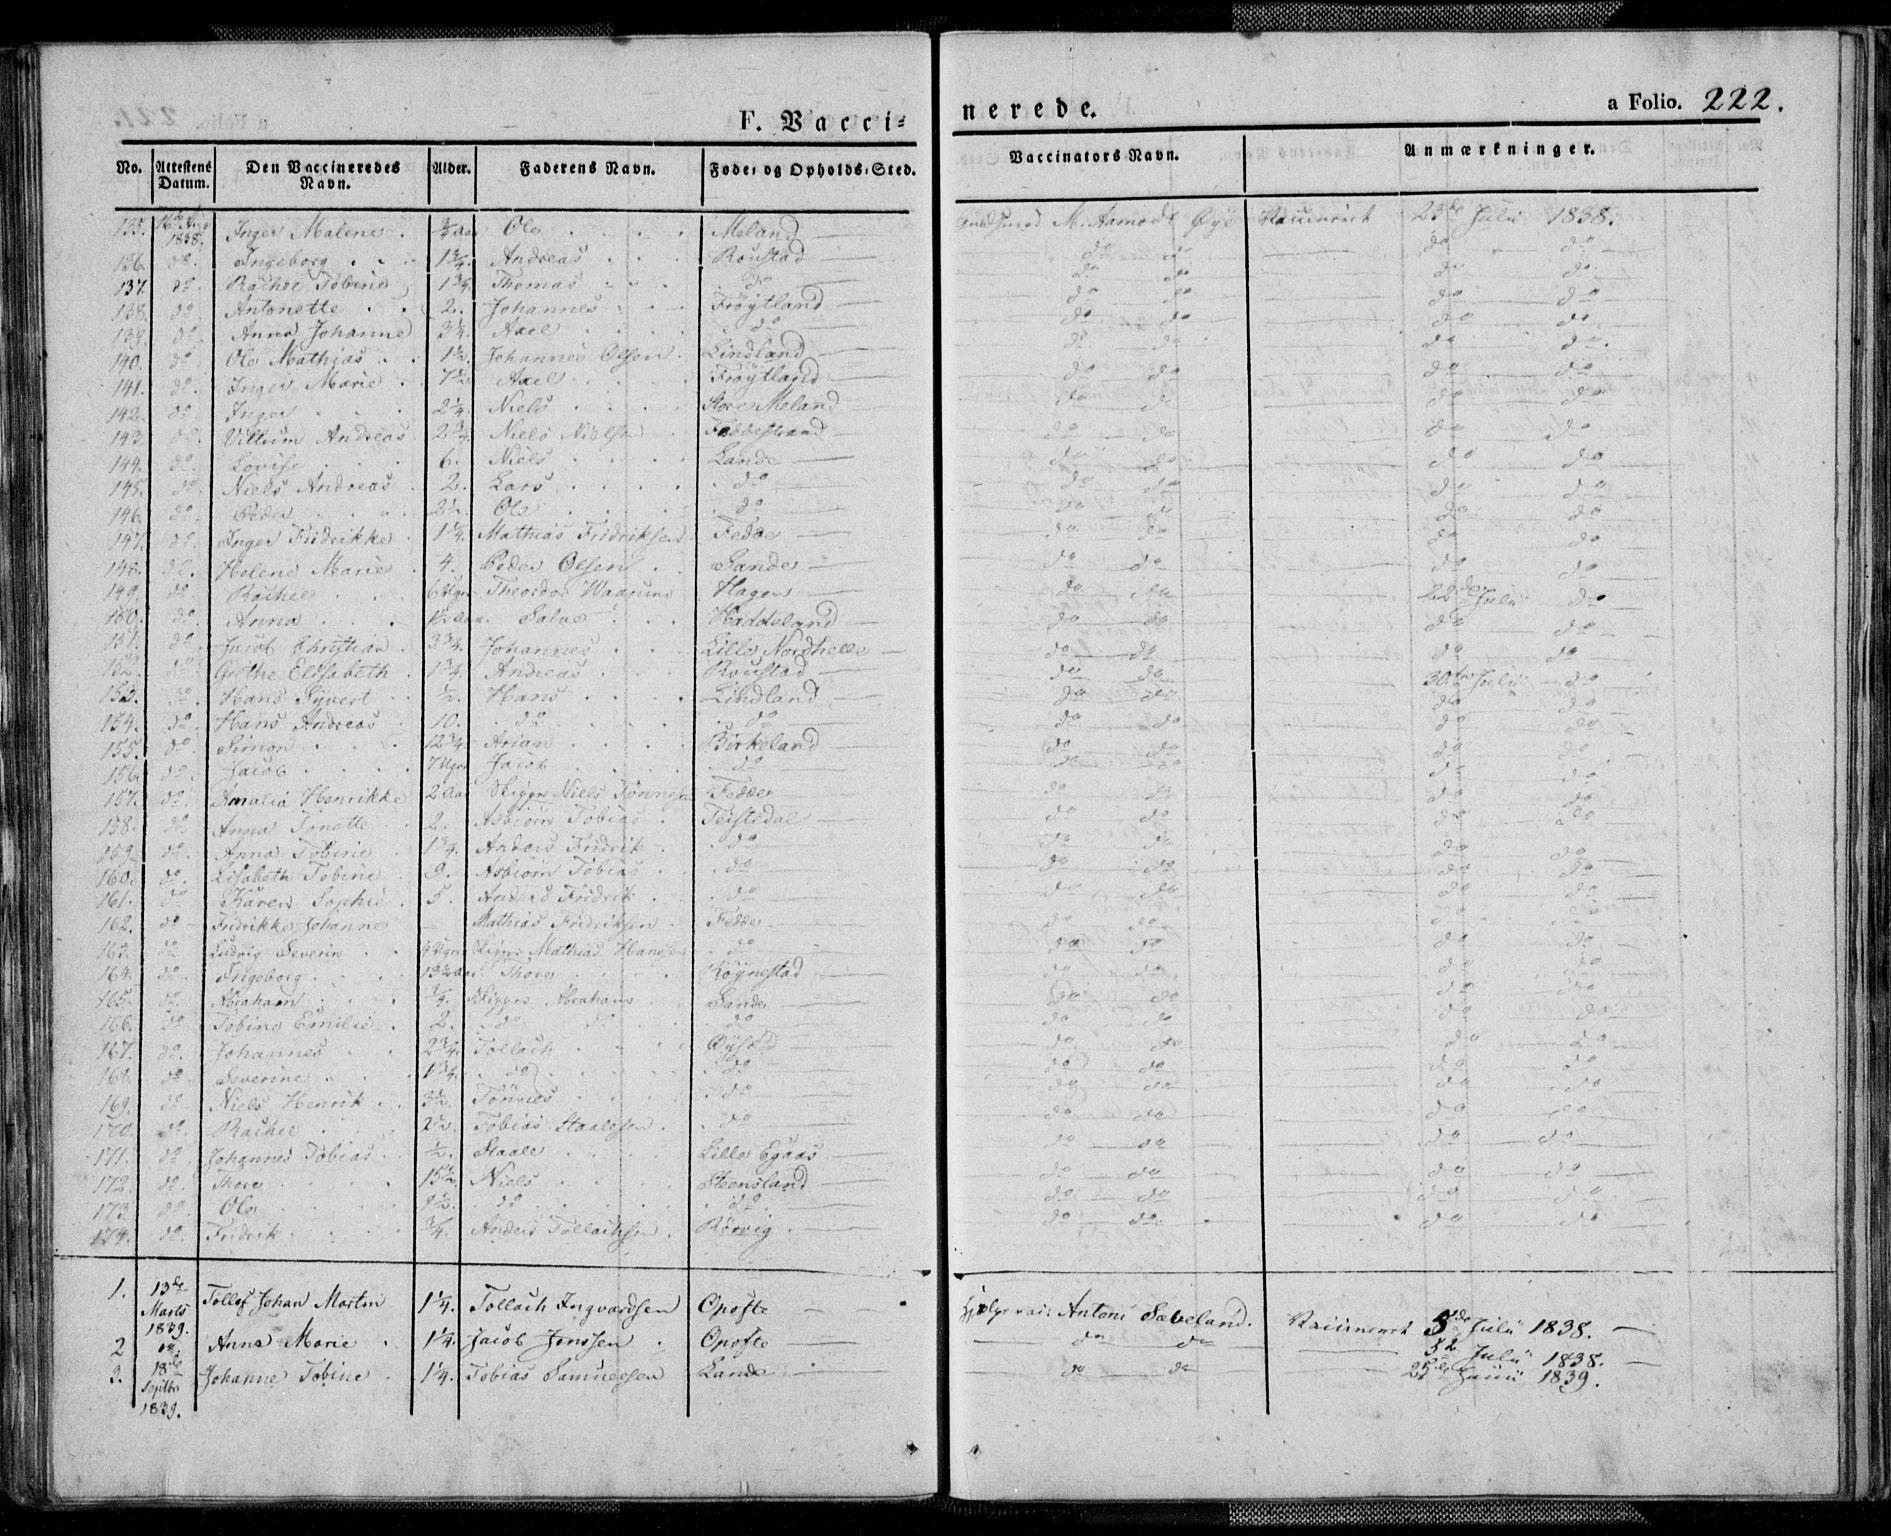 F. Vacci=
nerede.
a Folio. 222.
No. Attestens Datum. Den Vaccineredes Navn. Alder. Faderens Navn. Føde- og Opholds-Sted. Vaccinators Navn. Anmærkninger.
135. 16de Aug 1838. Inger Malene ¾ Aar Ole Meland M. Aamodt Øye Vaccineret 23de Julii 1838.
136. do. Ingeborg 1¾. Andreas Roustad do do do do
137. do. Rachel Tobine 1¾ Thomas do do do do do
138. do. Antonette 2. Johannes Frøytland do do do do
139. do. Anna Johanne 3¼. Axel do do do do do
140. do. Ole Mathias 1½. Johannes Olsen Lindland do do do do.
141. do. Inger Marie 7½ Axel Frøytland do do do do
142. do. Inger 2¼. Niels Store Meland do do do do
143 do. Villum Andreas 2¾. Niels Nielsen Feddestrand do do do do
144. do. Lovise 6. Niels Lande do do do do
145. do. Niels Andreas 2. Lars do do do do do
146. do. Peder 2½ Ole do do do do do
147. do. Inger Fridrikke 1¼. Mathias Fridriksen Fedde do do do do
148. do. Helene Marie 4. Peder Olsen Sande do do do do
149. do. Rachel 6 Theodor Waarum Hagen do do 22den Julii do
150. do. Anna 1½ Aar. Salve Haddeland do do do do
151. do. Jacob Christian 3¾. Johannes Lille Nordhelle do do do do
152. do. Grethe Elisabeth 1¾. Andreas Roustad do do 30te Julii do
153. do. Hans Syvert ½. Hans Lindland do do do do
154. do. Hans Andreas 10. do do do do do do
155. do. Simon 12¾. Arian Birkeland do do do do
156. do. Jacob 7 Uger Jacob do do do do do
157. do. Amalia Henrikke 2 Aar Skipper Niels Tønnesen Fedde do do do do
158. do. Anna Tonette 2. Asbiørn Tobias Teistedal do do do do
159. do. Anna Tobine 1¾. Anders Fridrik do do do do do
160. do. Lisabeth Tobine 9. Asbiørn Tobias do do do do do
161. do Karen Sophie 5. Anders Fridrik do do do do do
162. do Fridrikke Johanne Mathias Fridriksen Fedde do do do do
163. do Ludvig Severin Uger Skipper Mathias Hansen do do do do do
164. do. Ingeborg 13½ Aar. Thore Røynestad do do do do
165. do. Abraham ¾. Skipper Abraham Sande do do do do
166. do Tobine Emilie 2. do do do do do do do
167. do. Johannes 2¾. Tollach do do do do
168. do Severine 1¾. do do do do do do
169. do Niels Henrik 3½. Tønnes do do do do do
170. do. Rachel 2½. Tobias Staalesen do do do do do
171. do. Johannes Tobias ½. Staale Lille Egaas do do do do
172. do. Thore 15½. Niels Steensland do do do do
173. do Ole 9½. do do do do do do
174. do. Fridrik ¾. Anders Tollachsen Rørvig do do. do do
1. 13de Marts 1839. Tollef Johan Martin 1¼. Tollach Ingvardsen Opofte Antoni Sabeland. Vaccineret 5de Julii 1838.
2 do Anna Marie 1¼. Jacob Jenssen Opofte do do Julii 1838.
3. 18de Septbr 1839. Johanne Tobine 1¼. Tobias Samuelsen Lande do do 25de Junii 1839.